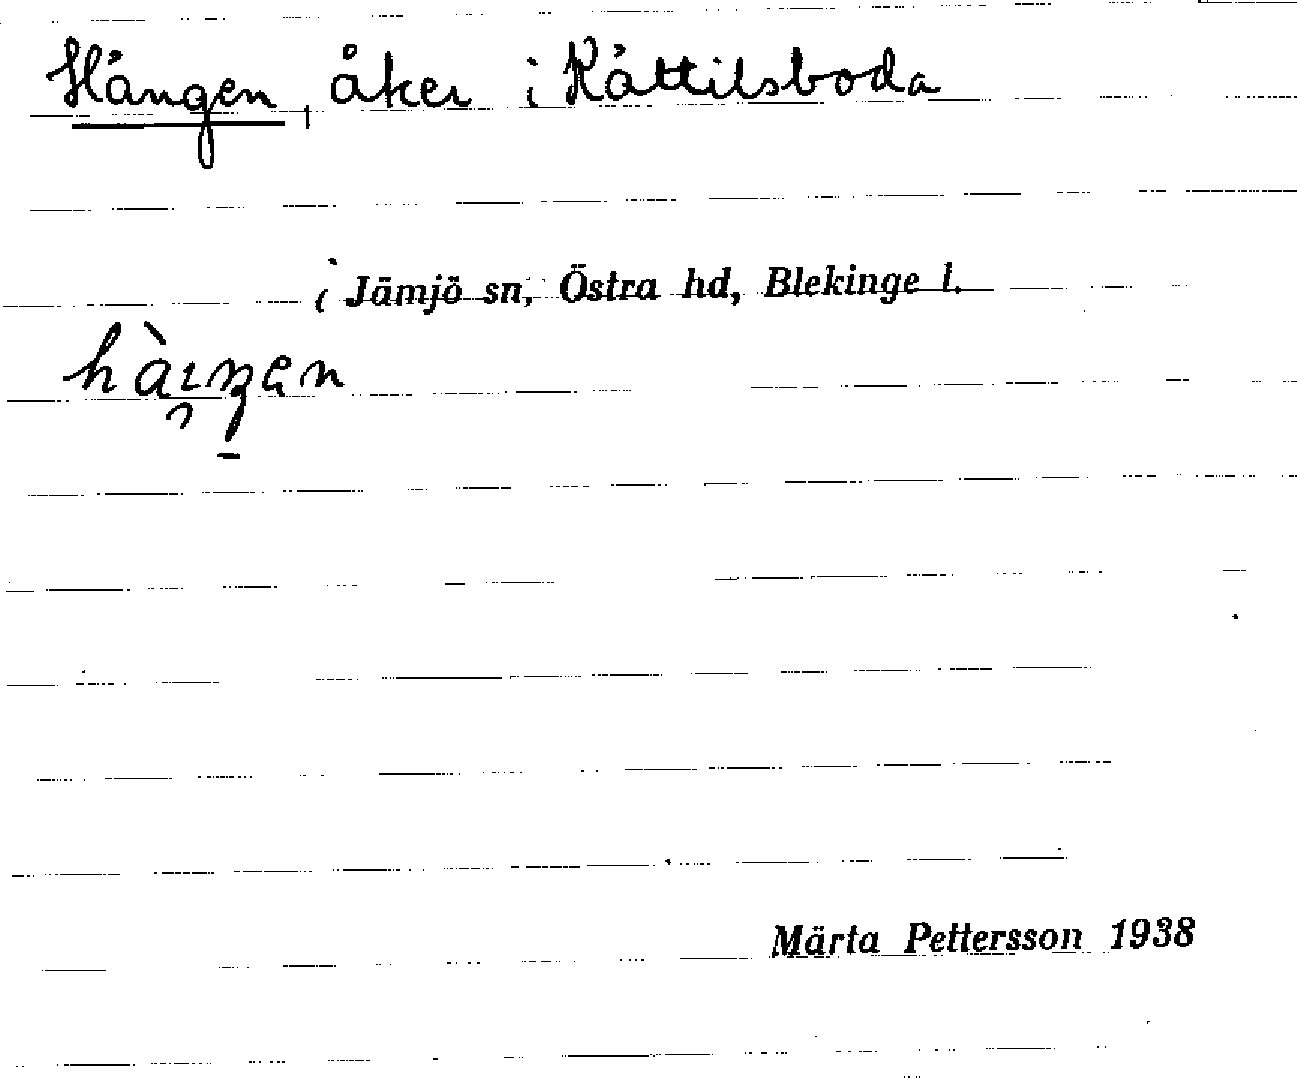 Hången, åker i Råttilsboda
i Jämjö sn, Östra hd, Blekinge l.
Märta Pettersson 1938